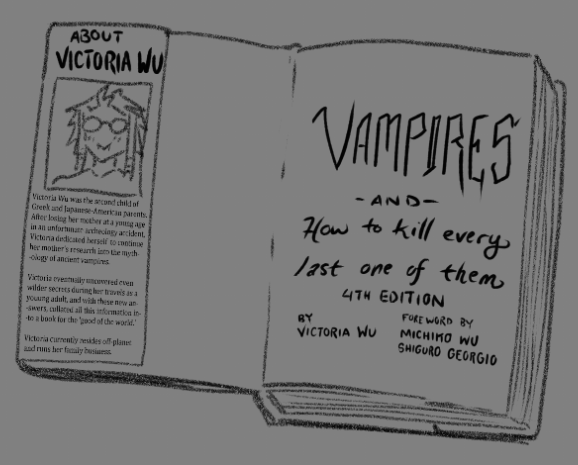 ABOUT
VICTORIA WU
Victoria Wu was the second child of
Greek and Japanese-American parents.
After losing her mother at a young age
in an unfortunate archeology accident,
Victoria dedicated herself to continue
her mother's research into the myth-
-ology of ancient vampires.
Victoria eventually uncovered even
wilder secrets during her travels as a
young adult, and with these new an-
-swers, collated all this information in-
-to a book for the 'good of the world.'
Victoria currently resides off-planet
and runs her family business.
VAMPIRES
-AND-
How to kill every
last one of them
4TH EDITION
BY
VICTORIA WU
FOREWORD BY
MICHIMO WU
SHIGURO GEORGIO